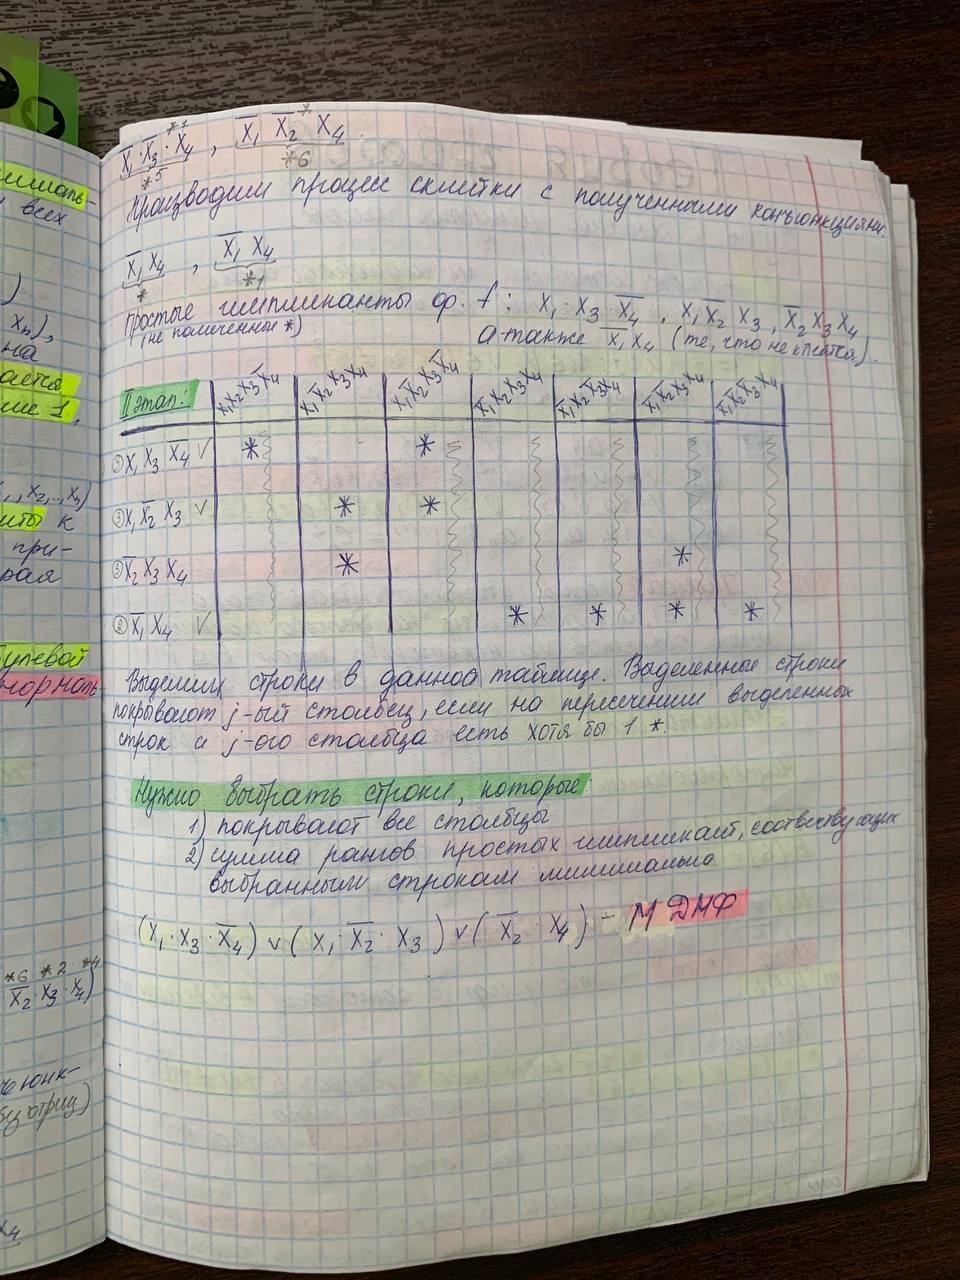 X̅₁·X̅₃·X₄, X̅₁ X̅₂ X₄
*5 *1 *6 *
Производим процесс склейки с полученными конъюнкциями.
X̅₁ X₄, X̅₁ X₄
* *1
Простые импликанты ф. f: X₁·X₃·X̅₄, X₁X̅₂X₃, X̅₂X₃X₄
(не помеченные *) а также X̅₁X₄ (те, что не клеятся).
II этап:
X₁X₂X₃X̅₄ X₁X̅₂X₃X₄ X₁X̅₂X₃X̅₄ X̅₁X₂X₃X₄ X̅₁X₂X̅₃X₄ X̅₁X̅₂X₃X₄ X̅₁X̅₂X̅₃X₄
③ X₁X₃X̅₄ ✓ * *
③ X₁X̅₂X₃ ✓ * *
③ X̅₂X₃X₄ * *
② X̅₁X₄ ✓ * * * *
Выделим строки в данной таблице. Выделенные строки
покрывают j-ый столбец, если на пересечении выделенных
строк и j-ого столбца есть хотя бы 1 *.
Нужно выбрать строки, которые:
1) покрывают все столбцы
2) сумма рангов простых импликант, соотвествующих
выбранным строкам минимальна
(X₁·X₃·X̅₄) v (X₁·X̅₂·X₃) v (X̅₂·X₄) – М ДНФ
всех
)
Xₙ),
на
ается
ие 1.
, X₂,..,Xₙ)
к
при-
рая
булевой
нормаль-
*6 *2 *4
X̅₂·X₃·X₄)
X₄